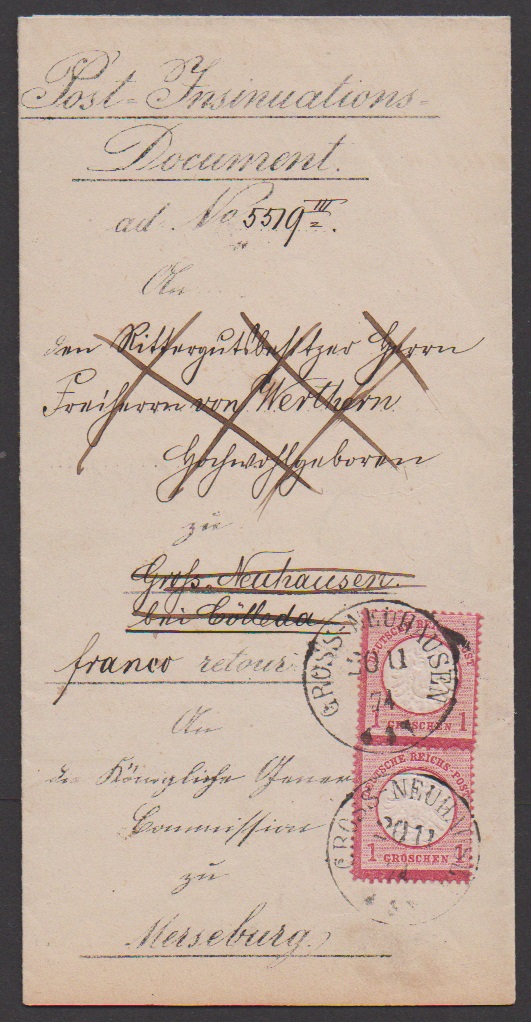 Post-Insinuations-
Document.
ad No 5519 III.
An
den Rittergutsbesitzer Herrn
Freiherrn von Werthern
Hochwohlgeboren
zu
Groß-Neuhausen.
bei Cölleda
franco retour
An
die Königliche Gener
Commission
zu
Merseburg.
GROSS-NEUHAUSEN
20 11
74
DEUTSCHE REICHS-POST
1 GROSCHEN 1
GROSS-NEUHAUSEN
20 11
74
DEUTSCHE REICHS-POST
1 GROSCHEN 1